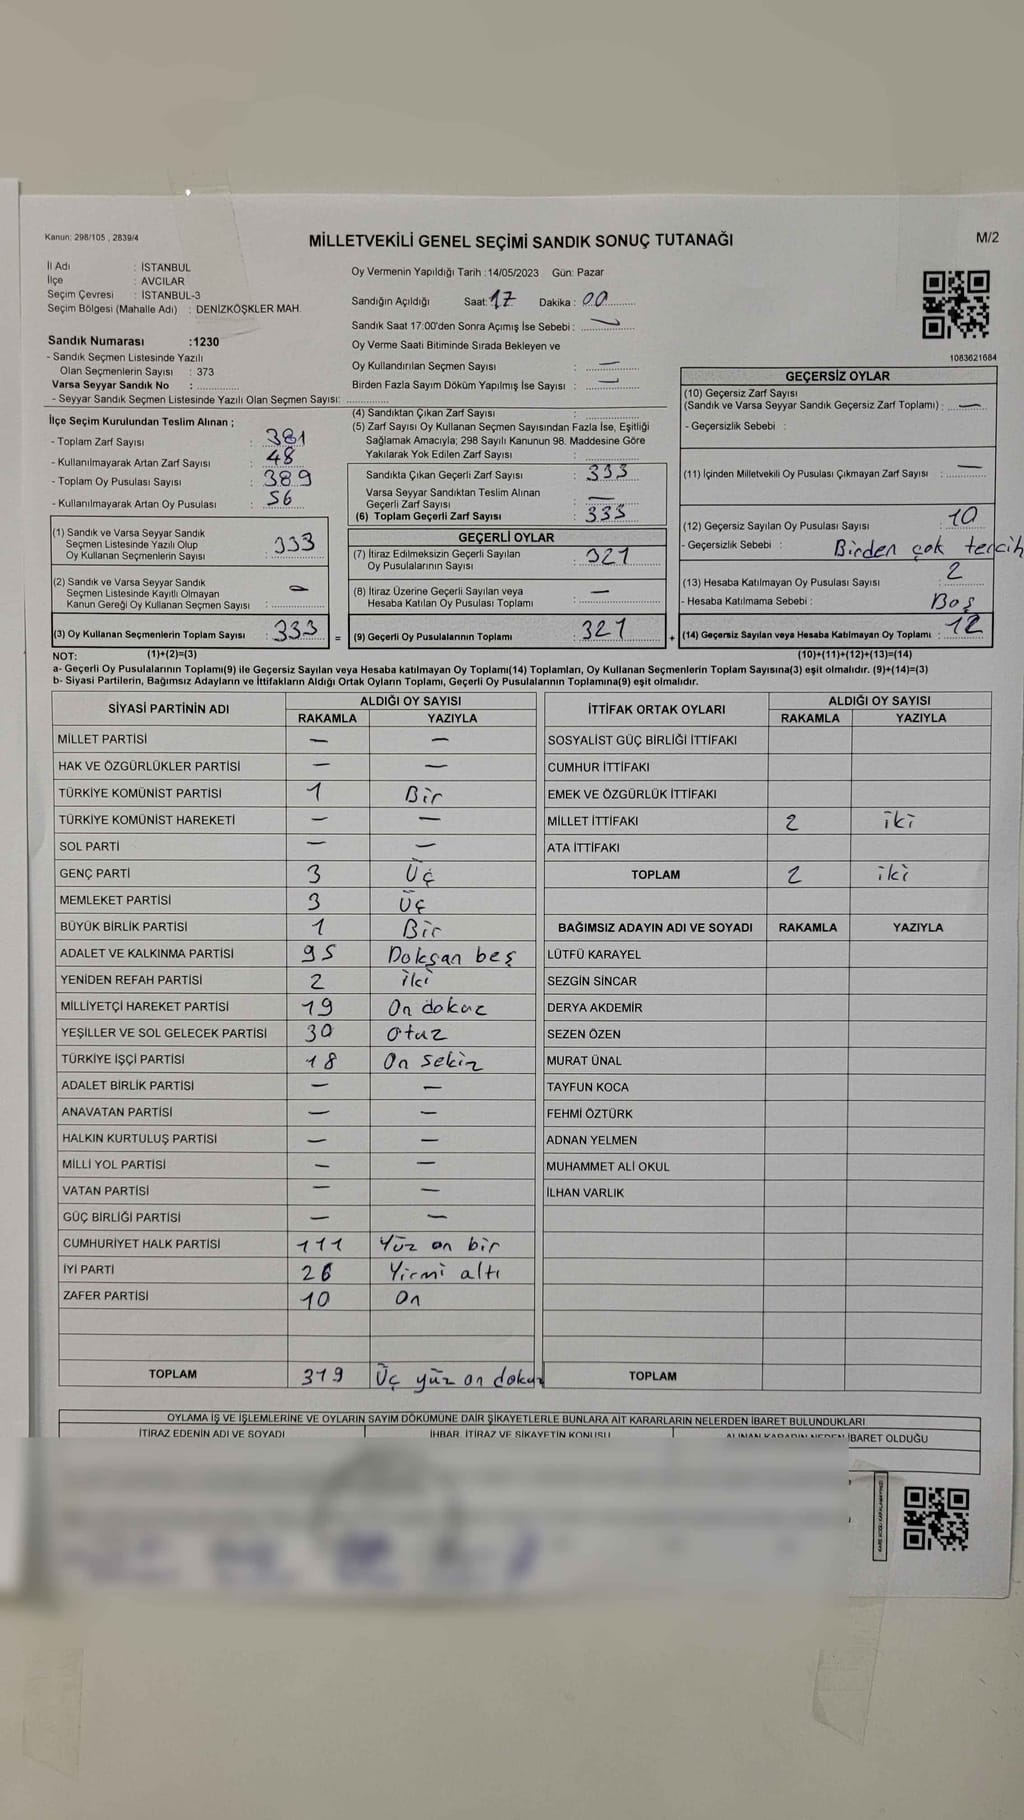 Kanun: 298/105 , 2839/4
MİLLETVEKİLİ GENEL SEÇİMİ SANDIK SONUÇ TUTANAĞI
M/2
İl Adı : İSTANBUL
İlçe : AVCILAR
Seçim Çevresi : İSTANBUL-3
Seçim Bölgesi (Mahalle Adı) : DENİZKÖŞKLER MAH.
Sandık Numarası :1230
- Sandık Seçmen Listesinde Yazılı
Olan Seçmenlerin Sayısı : 373
Varsa Seyyar Sandık No :
- Seyyar Sandık Seçmen Listesinde Yazılı Olan Seçmen Sayısı:
Oy Vermenin Yapıldığı Tarih :14/05/2023 Gün: Pazar
Sandığın Açıldığı Saat: 17 Dakika : 00
Sandık Saat 17:00'den Sonra Açımış İse Sebebi : —
Oy Verme Saati Bitiminde Sırada Bekleyen ve
Oy Kullandırılan Seçmen Sayısı : —
Birden Fazla Sayım Döküm Yapılmış İse Sayısı : —
1083621684
İlçe Seçim Kurulundan Teslim Alınan ;
- Toplam Zarf Sayısı : 381
- Kullanılmayarak Artan Zarf Sayısı : 48
- Toplam Oy Pusulası Sayısı : 389
- Kullanılmayarak Artan Oy Pusulası : 56
(1) Sandık ve Varsa Seyyar Sandık
Seçmen Listesinde Yazılı Olup
Oy Kullanan Seçmenlerin Sayısı : 333
(2) Sandık ve Varsa Seyyar Sandık
Seçmen Listesinde Kayıtlı Olmayan
Kanun Gereği Oy Kullanan Seçmen Sayısı :
(3) Oy Kullanan Seçmenlerin Toplam Sayısı : 333 =
(4) Sandıktan Çıkan Zarf Sayısı :
(5) Zarf Sayısı Oy Kullanan Seçmen Sayısından Fazla İse, Eşitliği
Sağlamak Amacıyla; 298 Sayılı Kanunun 98. Maddesine Göre
Yakılarak Yok Edilen Zarf Sayısı :
Sandıkta Çıkan Geçerli Zarf Sayısı : 333
Varsa Seyyar Sandıktan Teslim Alınan
Geçerli Zarf Sayısı : —
(6) Toplam Geçerli Zarf Sayısı : 333
GEÇERLİ OYLAR
(7) İtiraz Edilmeksizin Geçerli Sayılan
Oy Pusulalarının Sayısı : 321
(8) İtiraz Üzerine Geçerli Sayılan veya
Hesaba Katılan Oy Pusulası Toplamı : —
(9) Geçerli Oy Pusulalarının Toplamı : 321 +
GEÇERSİZ OYLAR
(10) Geçersiz Zarf Sayısı
(Sandık ve Varsa Seyyar Sandık Geçersiz Zarf Toplamı) : —
- Geçersizlik Sebebi :
(11) İçinden Milletvekili Oy Pusulası Çıkmayan Zarf Sayısı : —
(12) Geçersiz Sayılan Oy Pusulası Sayısı : 10
- Geçersizlik Sebebi : Birden çok tercih
(13) Hesaba Katılmayan Oy Pusulası Sayısı : 2
- Hesaba Katılmama Sebebi : Boş
(14) Geçersiz Sayılan veya Hesaba Katılmayan Oy Toplamı : 12
NOT: (1)+(2)=(3) (10)+(11)+(12)+(13)=(14)
a- Geçerli Oy Pusulalarının Toplamı(9) ile Geçersiz Sayılan veya Hesaba katılmayan Oy Toplamı(14) Toplamları, Oy Kullanan Seçmenlerin Toplam Sayısına(3) eşit olmalıdır. (9)+(14)=(3)
b- Siyasi Partilerin, Bağımsız Adayların ve İttifakların Aldığı Ortak Oyların Toplamı, Geçerli Oy Pusulalarının Toplamına(9) eşit olmalıdır.
SİYASİ PARTİNİN ADI ALDIĞI OY SAYISI
RAKAMLA YAZIYLA
MİLLET PARTİSİ — —
HAK VE ÖZGÜRLÜKLER PARTİSİ — —
TÜRKİYE KOMÜNİST PARTİSİ 1 Bir
TÜRKİYE KOMÜNİST HAREKETİ — —
SOL PARTİ — —
GENÇ PARTİ 3 Üç
MEMLEKET PARTİSİ 3 Üç
BÜYÜK BİRLİK PARTİSİ 1 Bir
ADALET VE KALKINMA PARTİSİ 95 Doksan beş
YENİDEN REFAH PARTİSİ 2 İki
MİLLİYETÇİ HAREKET PARTİSİ 19 On dokuz
YEŞİLLER VE SOL GELECEK PARTİSİ 30 Otuz
TÜRKİYE İŞÇİ PARTİSİ 18 On sekiz
ADALET BİRLİK PARTİSİ — —
ANAVATAN PARTİSİ — —
HALKIN KURTULUŞ PARTİSİ — —
MİLLİ YOL PARTİSİ — —
VATAN PARTİSİ — —
GÜÇ BİRLİĞİ PARTİSİ — —
CUMHURİYET HALK PARTİSİ 111 Yüz on bir
İYİ PARTİ 26 Yirmi altı
ZAFER PARTİSİ 10 On
TOPLAM 319 Üç yüz on dokuz
İTTİFAK ORTAK OYLARI ALDIĞI OY SAYISI
RAKAMLA YAZIYLA
SOSYALİST GÜÇ BİRLİĞİ İTTİFAKI
CUMHUR İTTİFAKI
EMEK VE ÖZGÜRLÜK İTTİFAKI
MİLLET İTTİFAKI 2 iki
ATA İTTİFAKI
TOPLAM 2 iki
BAĞIMSIZ ADAYIN ADI VE SOYADI RAKAMLA YAZIYLA
LÜTFÜ KARAYEL
SEZGİN SİNCAR
DERYA AKDEMİR
SEZEN ÖZEN
MURAT ÜNAL
TAYFUN KOCA
FEHMİ ÖZTÜRK
ADNAN YELMEN
MUHAMMET ALİ OKUL
İLHAN VARLIK
TOPLAM
OYLAMA İŞ VE İŞLEMLERİNE VE OYLARIN SAYIM DÖKÜMÜNE DAİR ŞİKAYETLERLE BUNLARA AİT KARARLARIN NELERDEN İBARET BULUNDUKLARI
İTİRAZ EDENİN ADI VE SOYADI İHBAR, İTİRAZ VE ŞİKAYETİN KONUSU ALINAN KARARIN NEDEN İBARET OLDUĞU